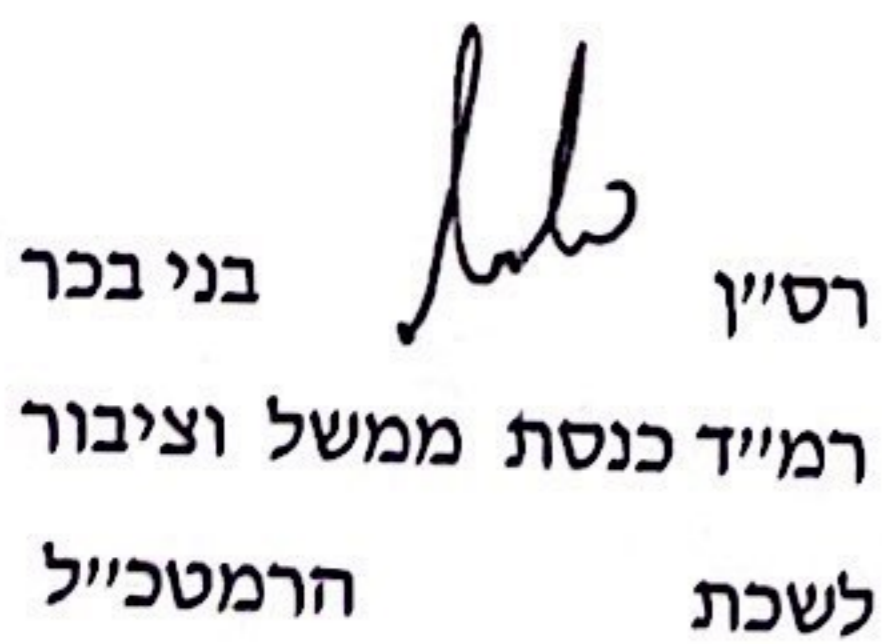 רס״ן בני בכר
רמ״ד כנסת ממשל וציבור
לשכת הרמטכ״ל